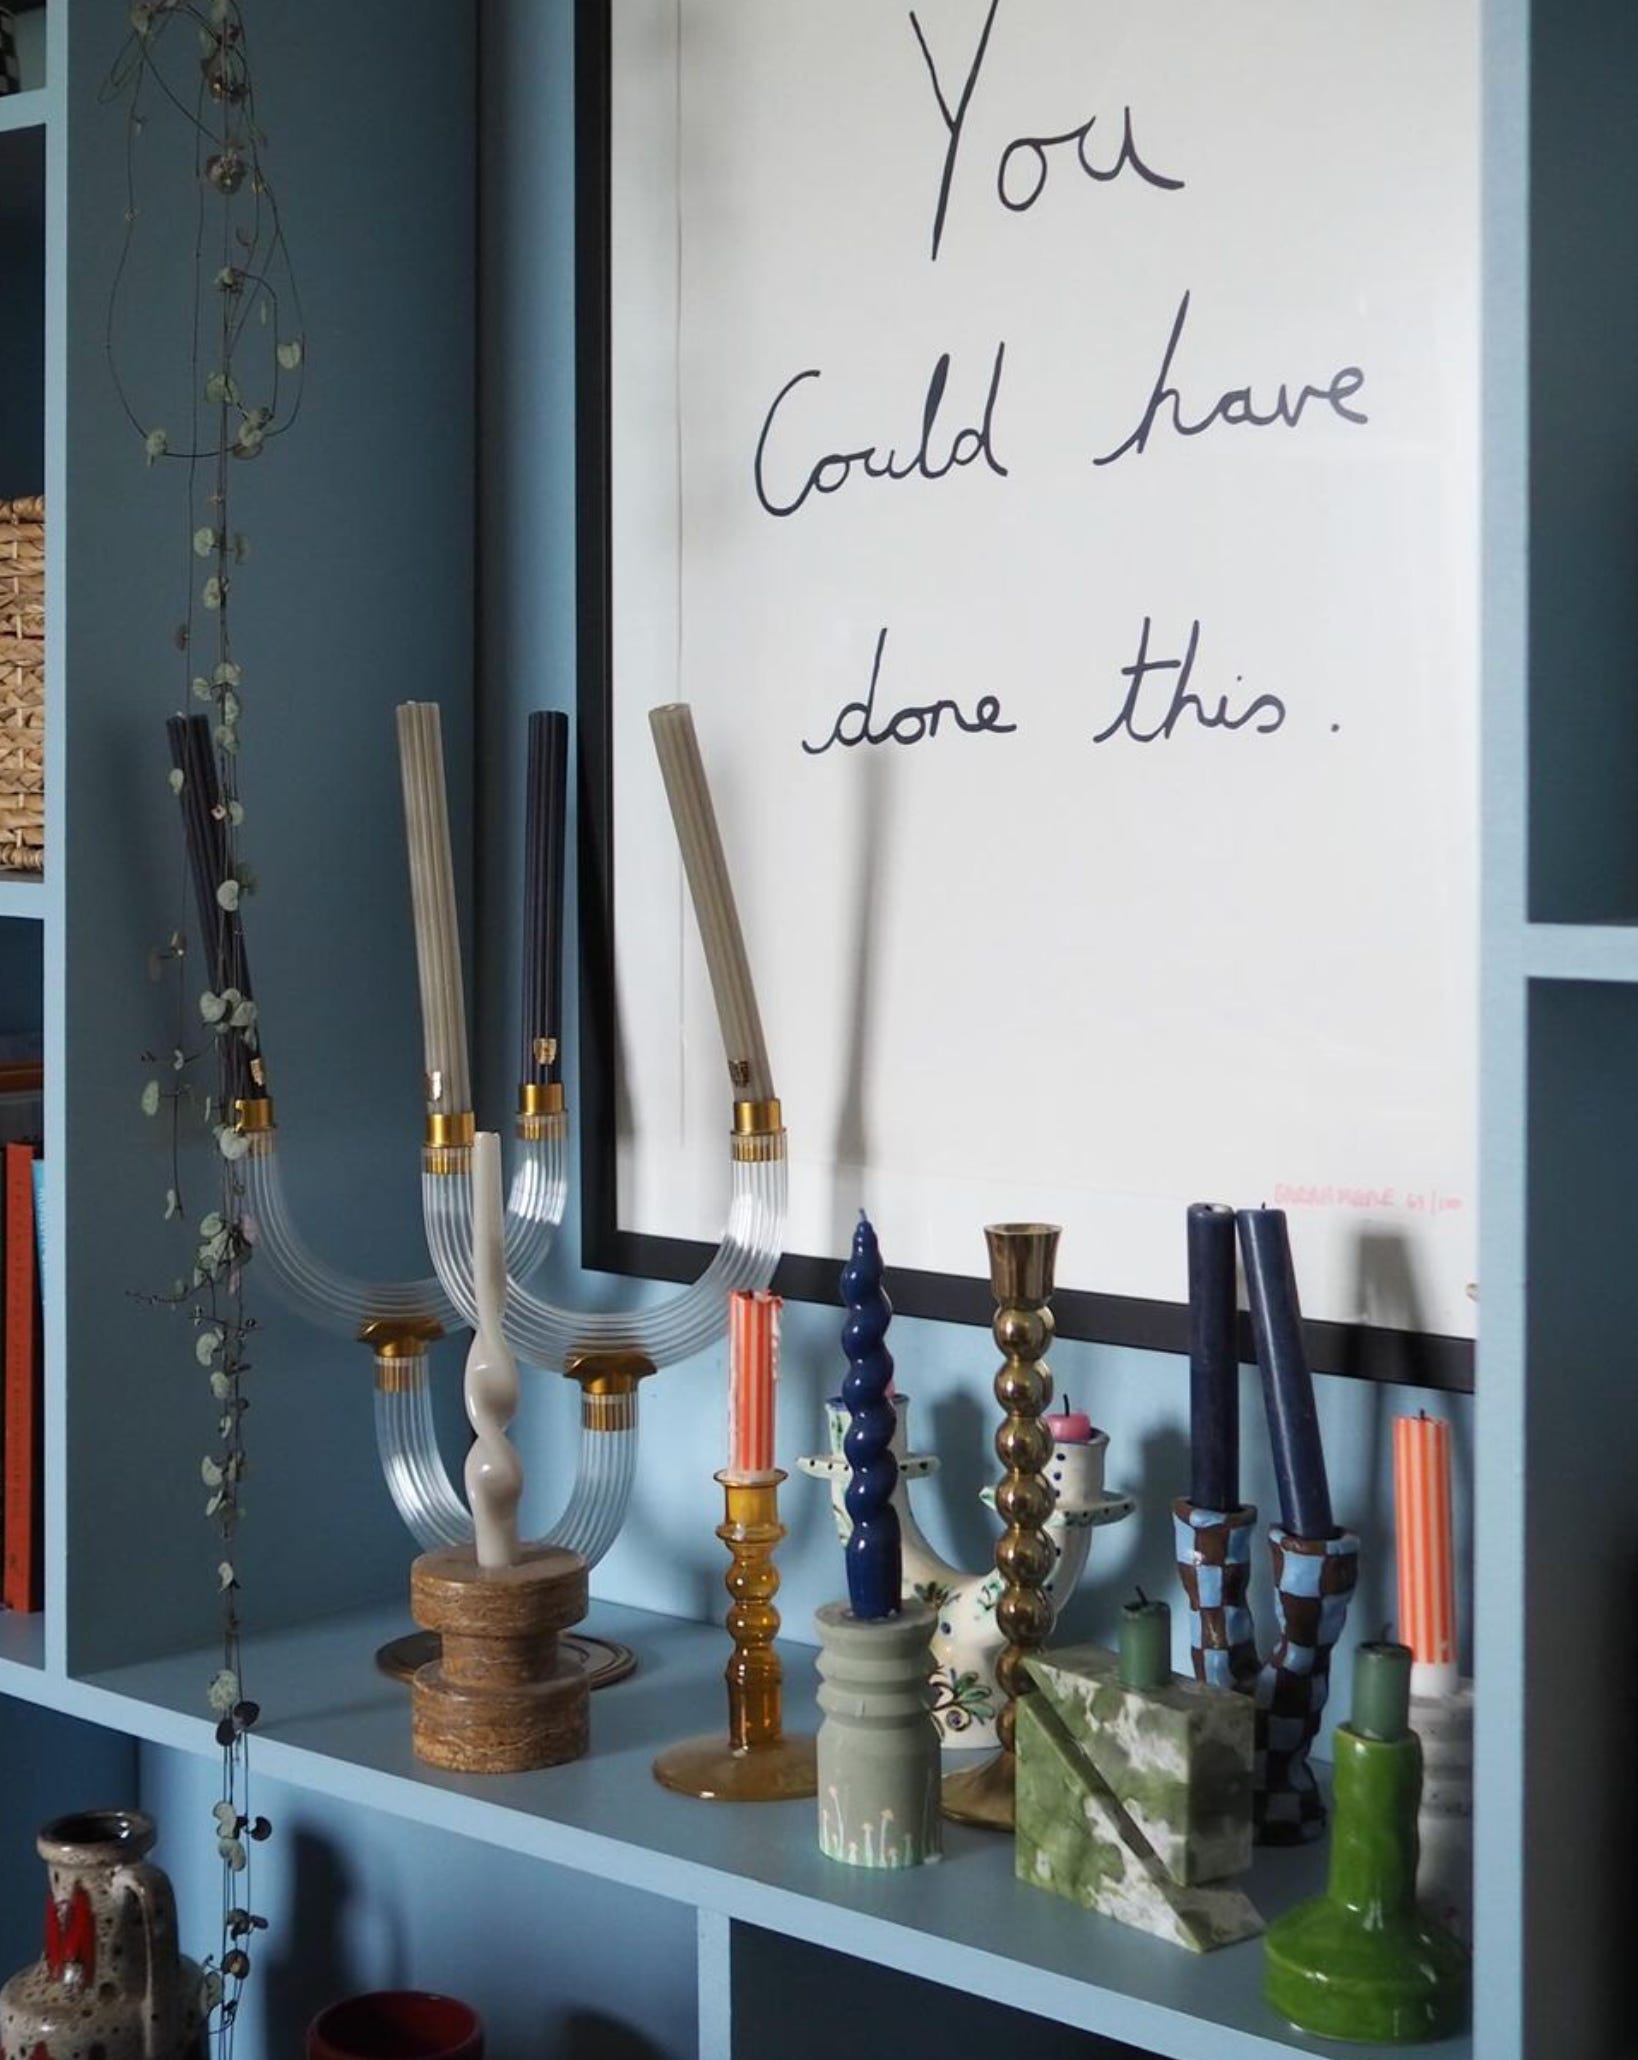 You
Could have
done this.